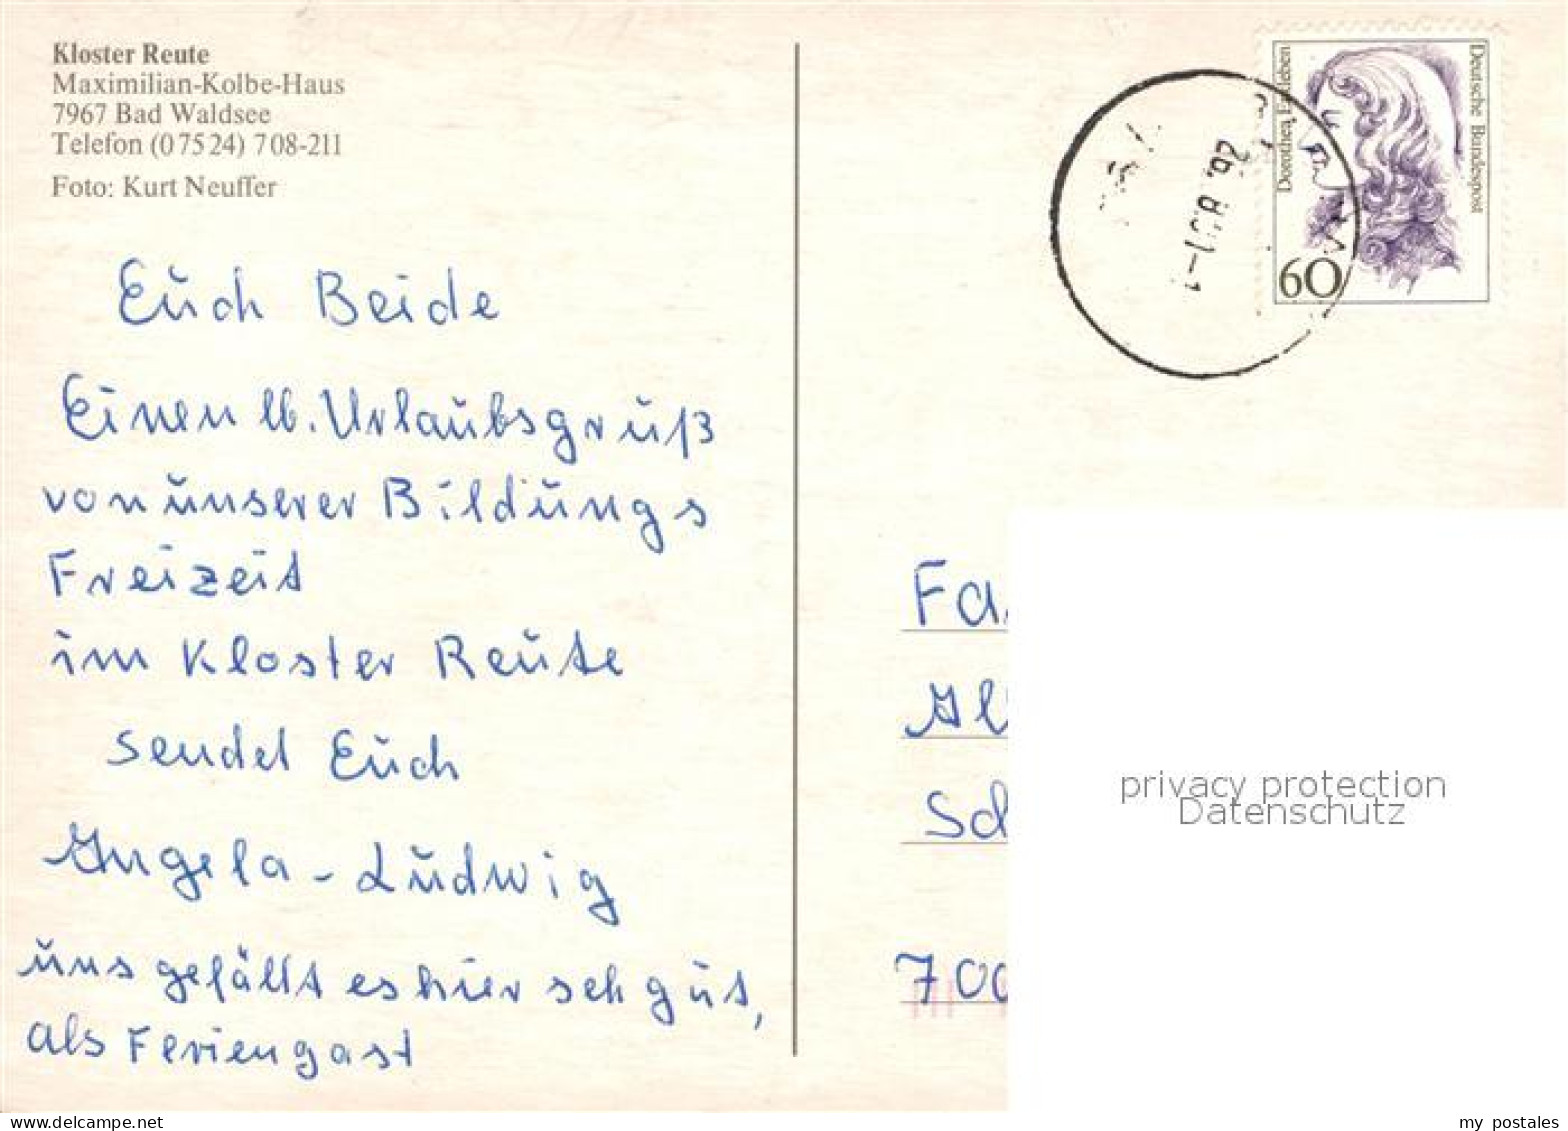 Kloster Reute
Maximilian-Kolbe-Haus
7967 Bad Waldsee
Telefon (07524) 708-211
Foto: Kurt Neuffer
Euch Beide
Einen lb. Urlaubsgruß
von unserer Bildungs
Freizeit
im Kloster Reute
sendet Euch
Angela - Ludwig
uns gefällt es hier seh gut,
als Feriengast
Deutsche Bundespost
Dorothea Erxleben
60
26. 8.
Fa
Al
Sch
700
privacy protection
Datenschutz
www.delcampe.net
my_postales